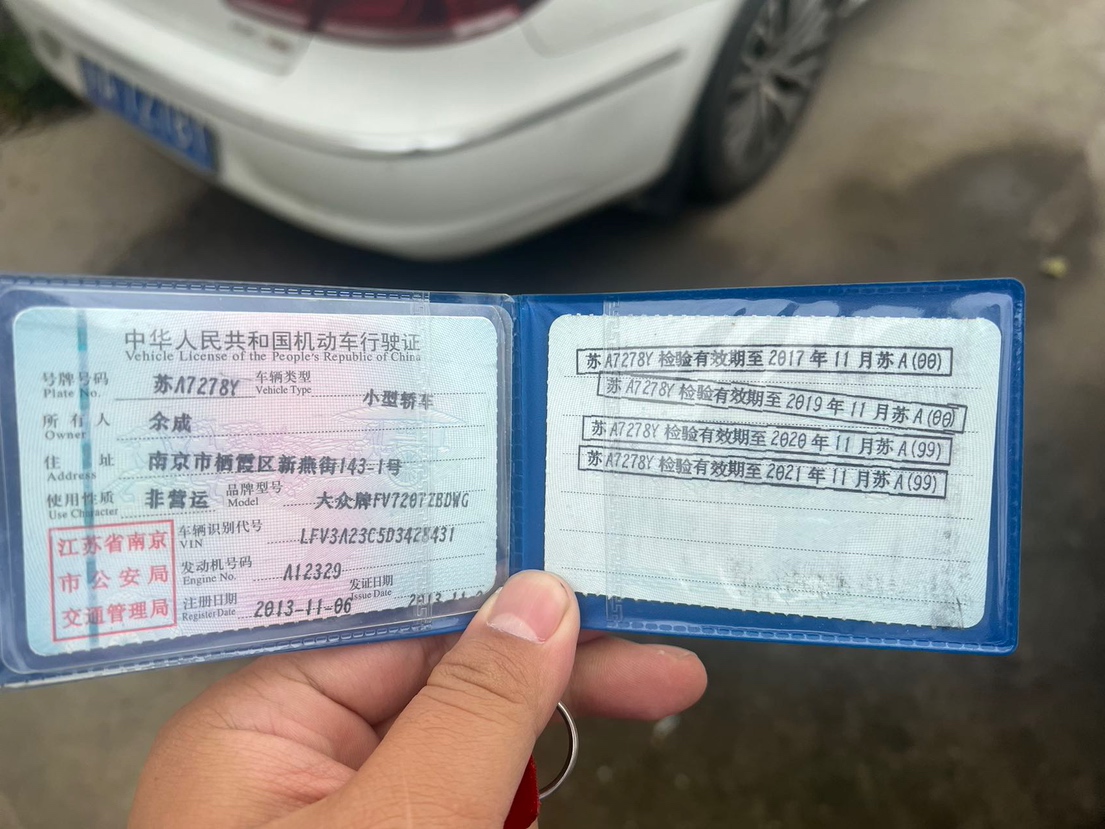 中华人民共和国机动车行驶证
Vehicle License of the People's Republic of China
号牌号码 苏A7278Y 车辆类型 小型轿车
Plate No. Vehicle Type
所有人 余成
Owner
住址 南京市栖霞区新燕街143-1号
Address
使用性质 非营运 品牌型号 大众牌FV7207ZBDWG
Use Character Model
江苏省南京
市公安局
交通管理局
车辆识别代号 LFV3A23C5D3428431
VIN
发动机号码 A12329
Engine No.
注册日期 2013-11-06 发证日期 2013-11
Register Date Issue Date
苏A7278Y 检验有效期至 2017 年 11 月苏A(00)
苏A7278Y 检验有效期至 2019 年 11 月苏A(00)
苏A7278Y 检验有效期至 2020 年 11 月苏A(99)
苏A7278Y 检验有效期至 2021 年 11 月苏A(99)